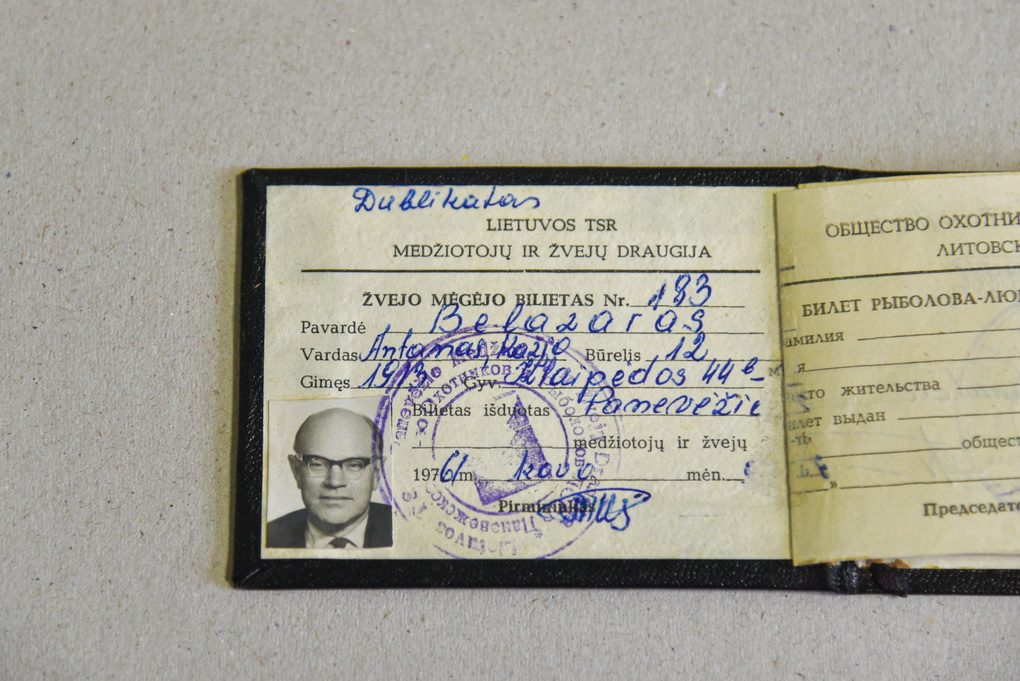 Dublikatas
LIETUVOS TSR
MEDŽIOTOJŲ IR ŽVEJŲ DRAUGIJA
ŽVEJO MĖGĖJO BILIETAS Nr. 183
Pavardė Belazaras
Vardas Antanas, Kazio Būrelis 12
Gimęs 1913 Gyv. Klaipėdos 44 b-
Bilietas išduotas Panevėžio
medžiotojų ir žvejų
1976 m. kovo mėn.
Pirmininkas
ОБЩЕСТВО ОХОТНИ
ЛИТОВСК
БИЛЕТ РЫБОЛОВА-ЛЮ
амилия
я
сто жительства
илет выдан
общест
Председате